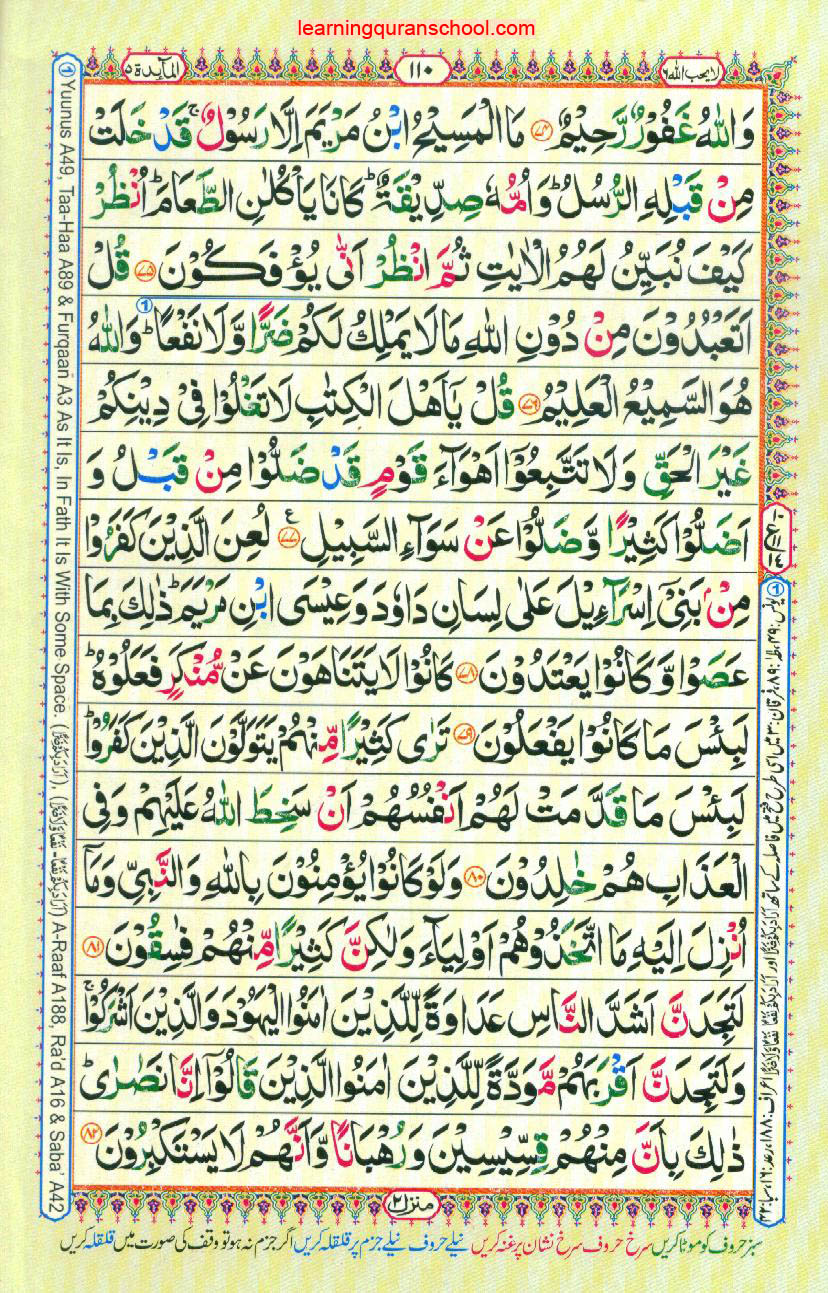 learningquranschool.com
لا يحب الله ٦
١١٠
المآىدة ٥
وَاللّٰهُ غَفُوْرٌ رَّحِيْمٌ ﴿٧٤﴾ مَا الْمَسِيْحُ ابْنُ مَرْيَمَ اِلَّا رَسُوْلٌ ۚ قَدْ خَلَتْ
مِنْ قَبْلِهِ الرُّسُلُ ؕ وَاُمُّهٗ صِدِّيْقَةٌ ؕ كَانَا يَاْكُلٰنِ الطَّعَامَ ؕ اُنْظُرْ
كَيْفَ نُبَيِّنُ لَهُمُ الْاٰيٰتِ ثُمَّ انْظُرْ اَنّٰى يُؤْفَكُوْنَ ﴿٧٥﴾ قُلْ
اَتَعْبُدُوْنَ مِنْ دُوْنِ اللّٰهِ مَا لَا يَمْلِكُ لَكُمْ ضَرًّا وَّلَا نَفْعًا ؕ وَاللّٰهُ
هُوَ السَّمِيْعُ الْعَلِيْمُ ﴿٧٦﴾ قُلْ يٰۤاَهْلَ الْكِتٰبِ لَا تَغْلُوْا فِىْ دِيْنِكُمْ
غَيْرَ الْحَقِّ وَلَا تَتَّبِعُوْۤا اَهْوَآءَ قَوْمٍ قَدْ ضَلُّوْا مِنْ قَبْلُ وَ
اَضَلُّوْا كَثِيْرًا وَّضَلُّوْا عَنْ سَوَآءِ السَّبِيْلِ ﴿٧٧﴾ ع لُعِنَ الَّذِيْنَ كَفَرُوْا
مِنْۢ بَنِىْۤ اِسْرَآءِيْلَ عَلٰى لِسَانِ دَاوٗدَ وَعِيْسَى ابْنِ مَرْيَمَ ؕ ذٰلِكَ بِمَا
عَصَوْا وَّكَانُوْا يَعْتَدُوْنَ ﴿٧٨﴾ كَانُوْا لَا يَتَنَاهَوْنَ عَنْ مُّنْكَرٍ فَعَلُوْهُ ؕ
لَبِئْسَ مَا كَانُوْا يَفْعَلُوْنَ ﴿٧٩﴾ تَرٰى كَثِيْرًا مِّنْهُمْ يَتَوَلَّوْنَ الَّذِيْنَ كَفَرُوْا ؕ
لَبِئْسَ مَا قَدَّمَتْ لَهُمْ اَنْفُسُهُمْ اَنْ سَخِطَ اللّٰهُ عَلَيْهِمْ وَفِى
الْعَذَابِ هُمْ خٰلِدُوْنَ ﴿٨٠﴾ وَلَوْ كَانُوْا يُؤْمِنُوْنَ بِاللّٰهِ وَالنَّبِىِّ وَمَاۤ
اُنْزِلَ اِلَيْهِ مَا اتَّخَذُوْهُمْ اَوْلِيَآءَ وَلٰكِنَّ كَثِيْرًا مِّنْهُمْ فٰسِقُوْنَ ﴿٨١﴾
لَتَجِدَنَّ اَشَدَّ النَّاسِ عَدَاوَةً لِّلَّذِيْنَ اٰمَنُوا الْيَهُوْدَ وَالَّذِيْنَ اَشْرَكُوْا ۚ
وَلَتَجِدَنَّ اَقْرَبَهُمْ مَّوَدَّةً لِّلَّذِيْنَ اٰمَنُوا الَّذِيْنَ قَالُوْۤا اِنَّا نَصٰرٰى ؕ
ذٰلِكَ بِاَنَّ مِنْهُمْ قِسِّيْسِيْنَ وَرُهْبَانًا وَّاَنَّهُمْ لَا يَسْتَكْبِرُوْنَ ﴿٨٢﴾
منزل ٢
سبز حروف کو موٹا کریں سرخ حروف سرخ نشان پر غنہ کریں نیلے حروف نیلے جزم پر قلقلہ کریں اگر جزم نہ ہو تو وقف کی صورت میں قلقلہ کریں
① Yuunus A49, Taa-Haa A89 & Furqaan A3 As It Is, In Fath It Is With Some Space. A-Raaf A188, Ra'd A16 & Saba' A42